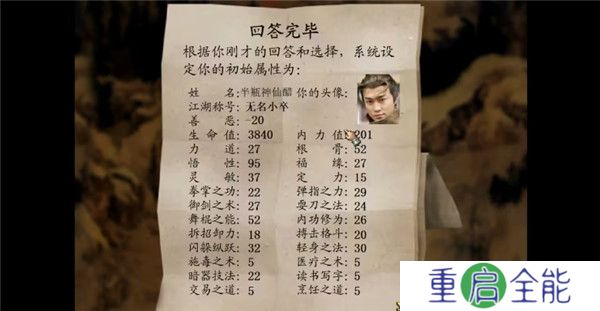 回答完毕
根据你刚才的回答和选择，系统设
定你的初始属性为：
姓 名：半瓶神仙醋 你的头像：
江湖称号：无名小卒
善 恶：-20
生命值：3840 内力值：201
力 道：27 根 骨：52
悟 性：95 福 缘：27
灵 敏：37 定 力：15
拳掌之功：22 弹指之力：29
御剑之术：27 耍刀之法：24
舞棍之能：52 内功修为：26
拆招卸力：18 搏击格斗：20
闪躲纵跃：32 轻身之法：30
施毒之术：5 医疗之术：5
暗器技法：22 读书写字：5
交易之道：5 烹饪之道：5
重启全能